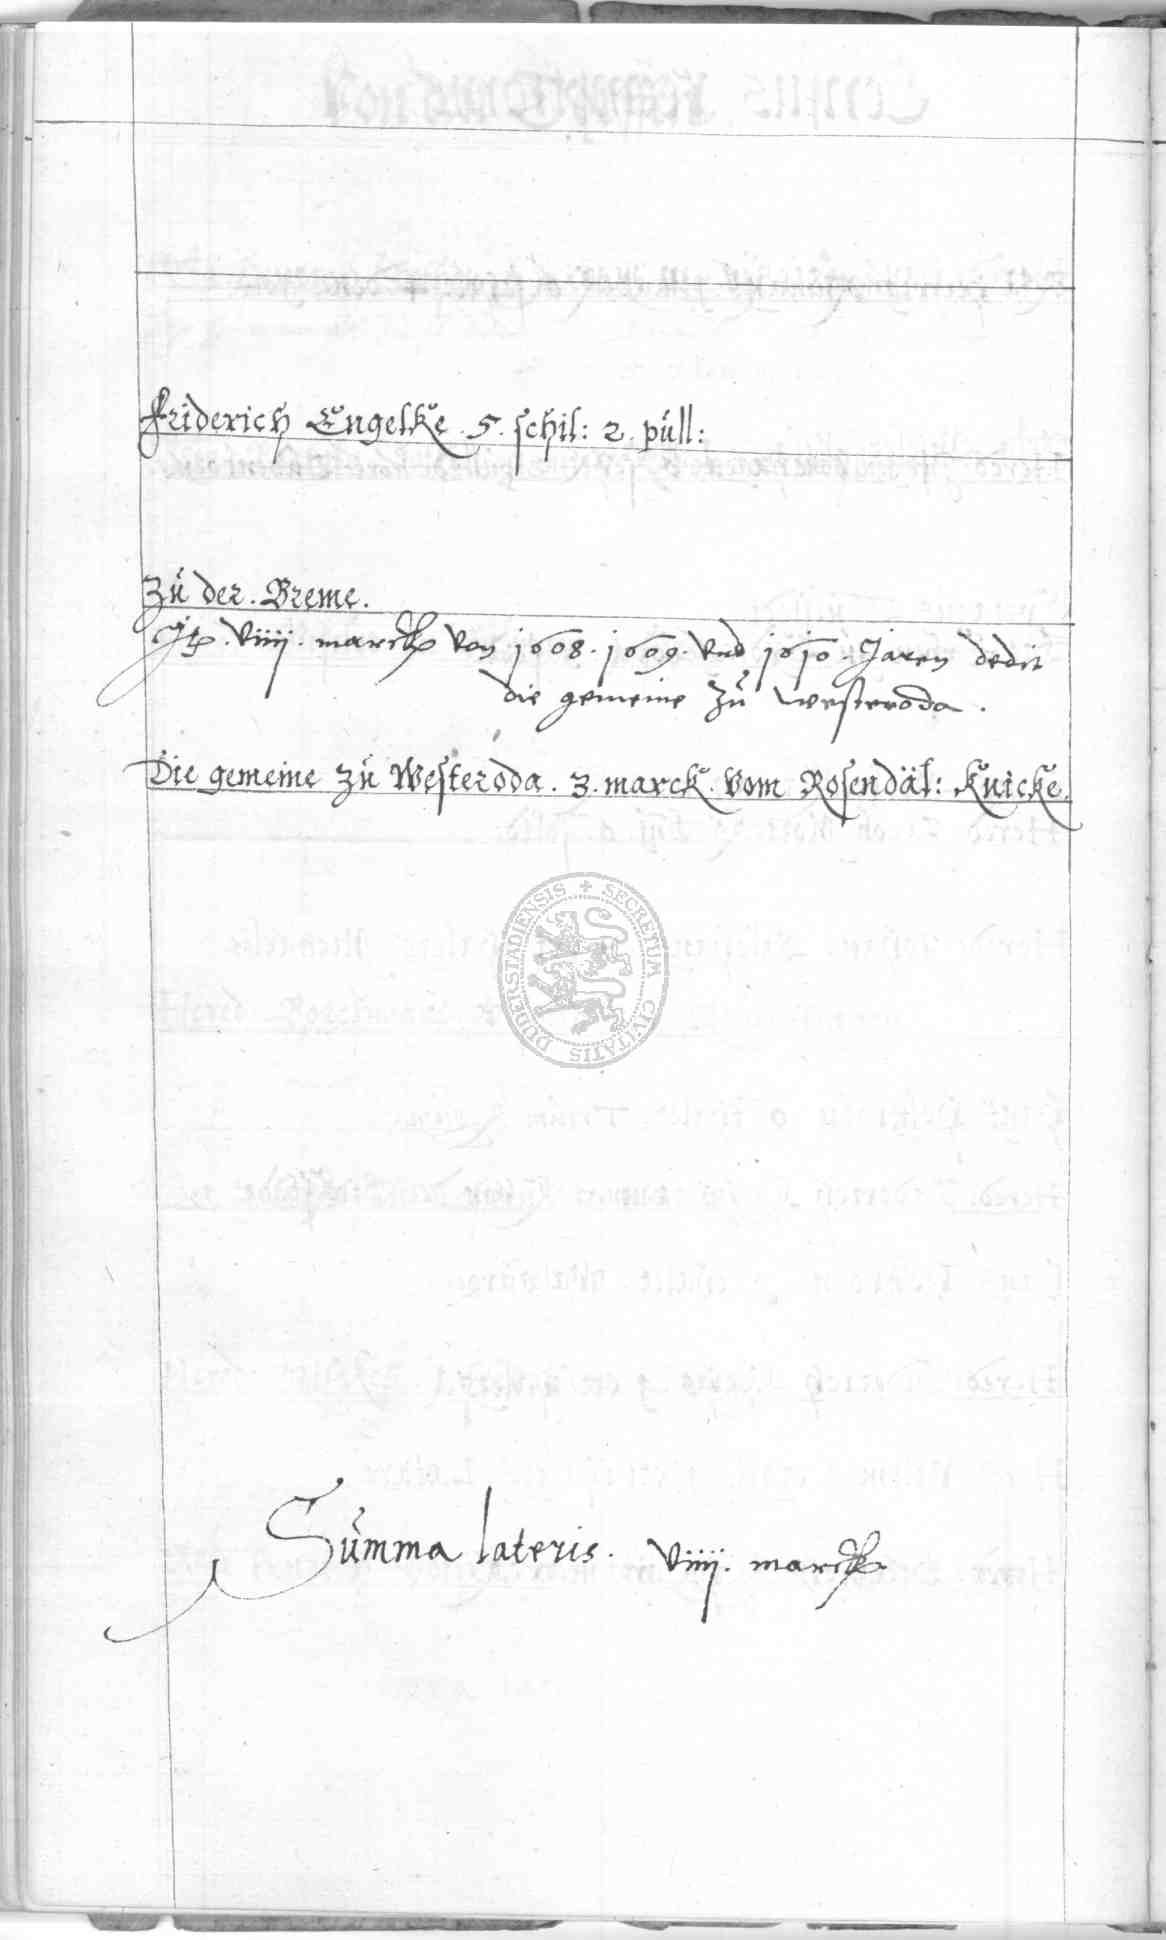 Friderich Engelke . 5 . schil: 2 . pull:
Zu der . Breme .
Jt . Viiij . marck von 1608 . 1609 . vnd 1610 . Jaren dedit
die gemeine zu westeroda .
Die gemeine zu Westeroda . 3 . marck . vom Rosendäl: Knicke .
SECRETUM CIVITATIS DUDERSTADIENSIS
Summa lateris . Viiij . marck